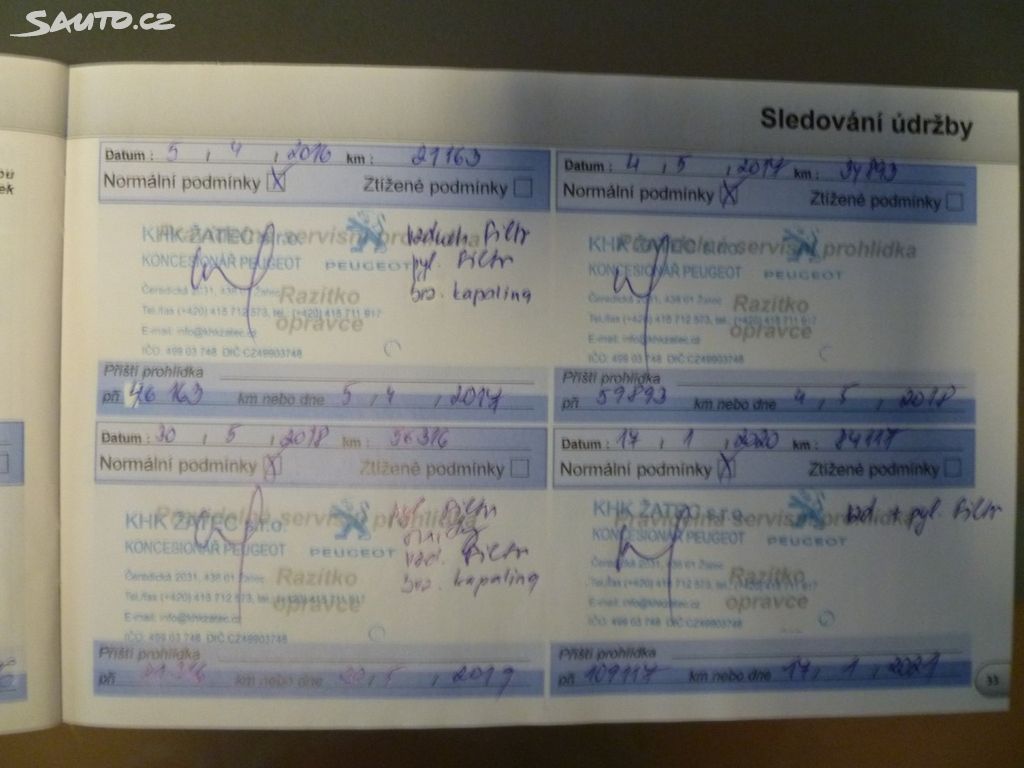 Sauto.cz
Sledování údržby
Datum : 5 , 4 , 2016 km : 21163
Normální podmínky X Ztížené podmínky
Pravidelná servisní prohlídka
KHK ŽATEC s.r.o.
KONCESIONÁŘ PEUGEOT
PEUGEOT
Čeradická 2031, 438 01 Žatec
Razítko opravce
Tel./fax (+420) 415 712 573, tel. (+420) 415 711 617
E-mail: info@khkzatec.cz
IČO: 499 03 748 DIČ CZ49903748
vzduch. filtr
pyl. filtr
brz. kapalina
Příští prohlídka
při 46 163 km nebo dne 5 , 4 , 2017
Datum : 4 , 5 , 2017 km : 34893
Normální podmínky X Ztížené podmínky
Pravidelná servisní prohlídka
KHK ŽATEC s.r.o.
KONCESIONÁŘ PEUGEOT
PEUGEOT
Čeradická 2031, 438 01 Žatec
Razítko opravce
Tel./fax (+420) 415 712 573, tel. (+420) 415 711 617
E-mail: info@khkzatec.cz
IČO: 499 03 748 DIČ CZ49903748
Příští prohlídka
při 59893 km nebo dne 4 , 5 , 2018
Datum : 30 , 5 , 2018 km : 56316
Normální podmínky X Ztížené podmínky
Pravidelná servisní prohlídka
KHK ŽATEC s.r.o.
KONCESIONÁŘ PEUGEOT
PEUGEOT
Čeradická 2031, 438 01 Žatec
Razítko opravce
Tel./fax (+420) 415 712 573, tel. (+420) 415 711 617
E-mail: info@khkzatec.cz
IČO: 499 03 748 DIČ CZ49903748
pyl. filtr
vzd. filtr
brz. kapalina
Příští prohlídka
při km nebo dne 30 , 5 , 2019
Datum : 17 , 1 , 2020 km : 84117
Normální podmínky X Ztížené podmínky
Pravidelná servisní prohlídka
KHK ŽATEC s.r.o.
KONCESIONÁŘ PEUGEOT
PEUGEOT
Čeradická 2031, 438 01 Žatec
Razítko opravce
Tel./fax (+420) 415 712 573, tel. (+420) 415 711 617
E-mail: info@khkzatec.cz
IČO: 499 03 748 DIČ CZ49903748
vzd + pyl. filtr
Příští prohlídka
při 109117 km nebo dne 17 , 1 , 2021
33